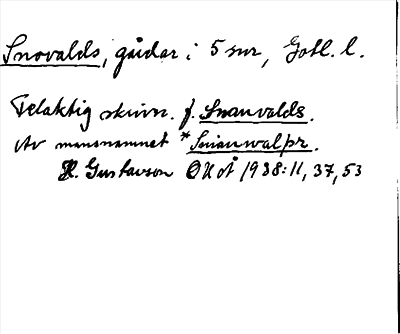 Snovalds, gårdar i 5 snr, Gotl. l.
Felaktig skrivn. f. Snauvalds.
Av mansnamnet *Sniauwalþr.
H. Gustavson OUÅ 1938:11, 37, 53